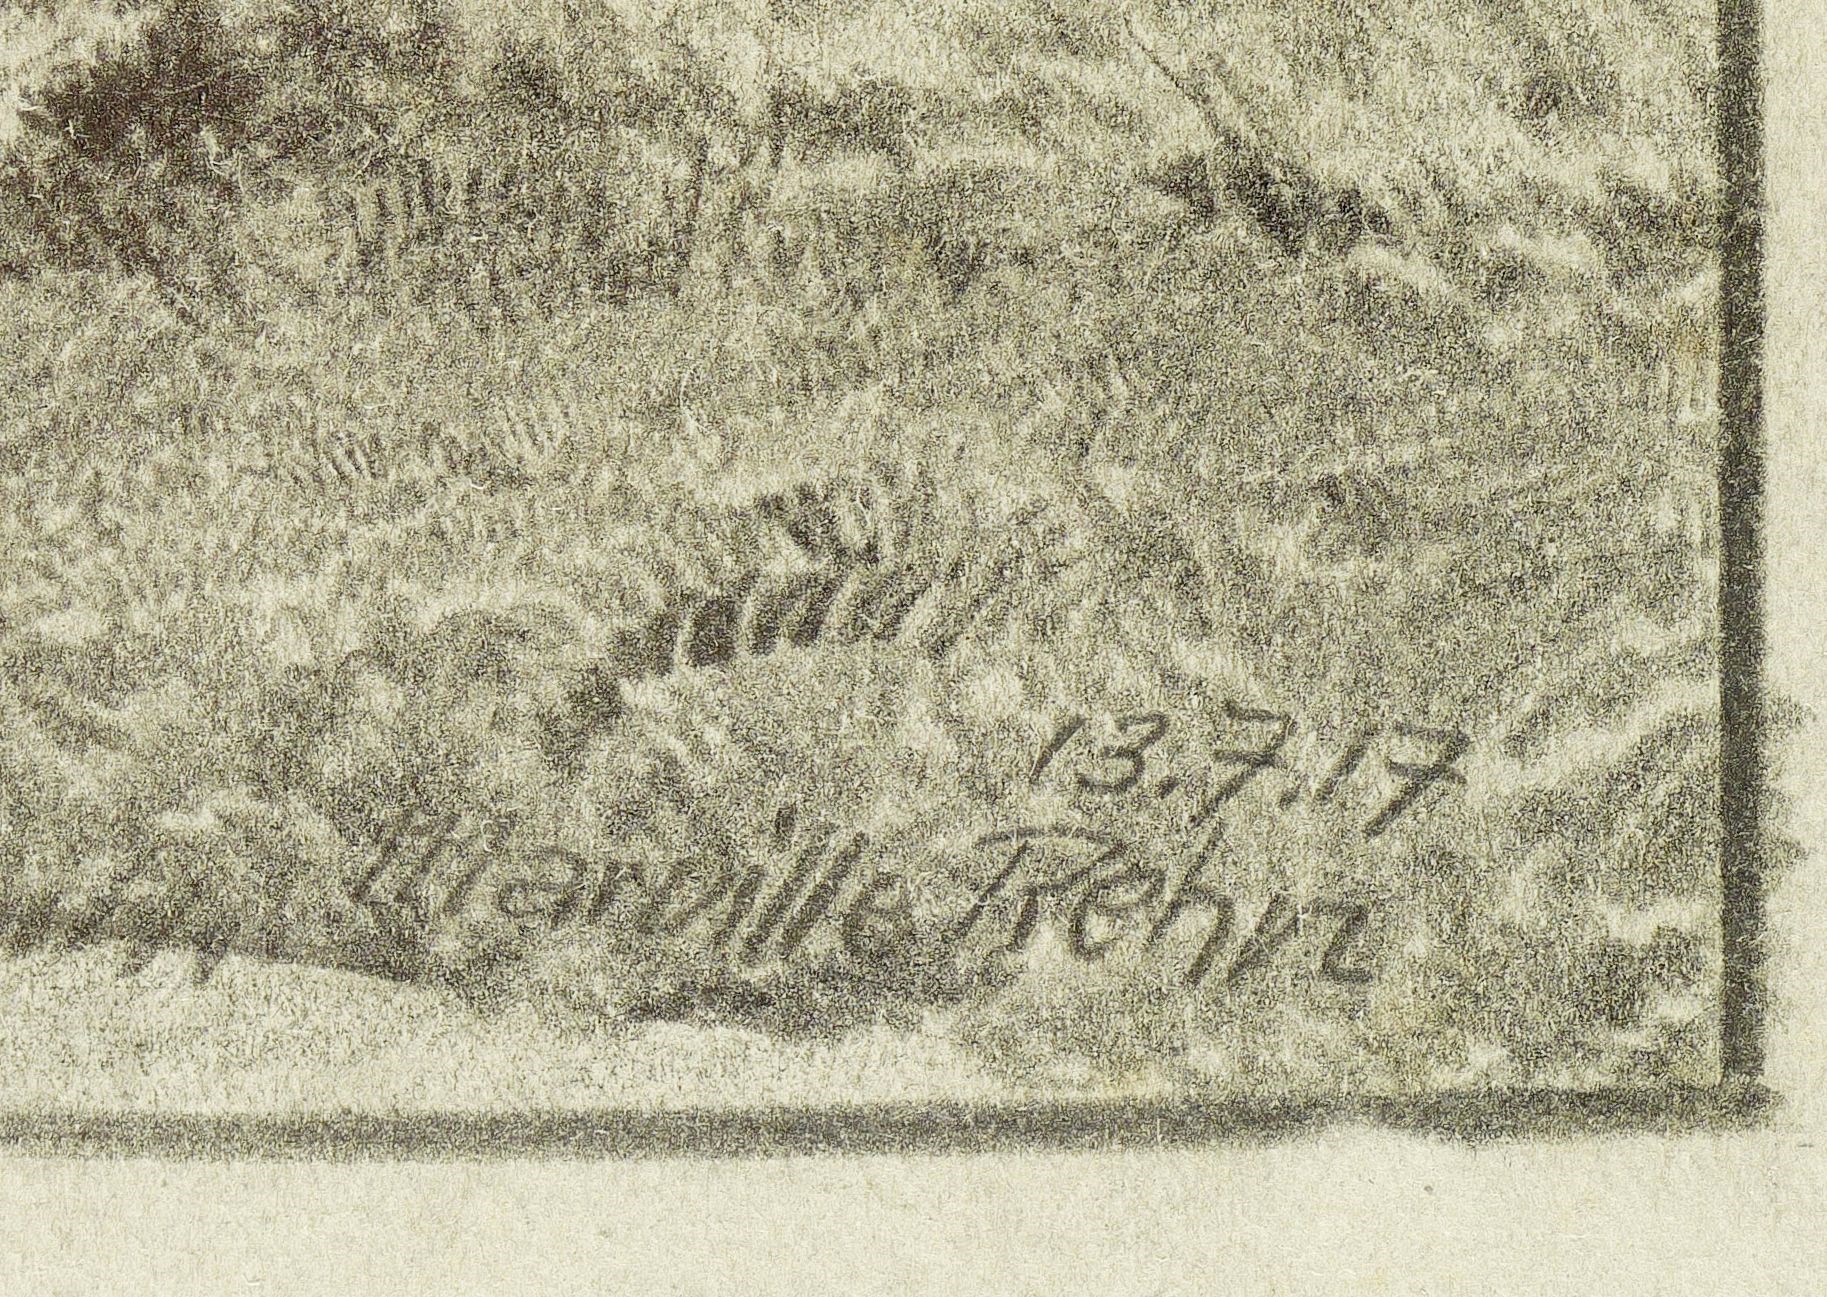 13.7.17
Merville Rehn